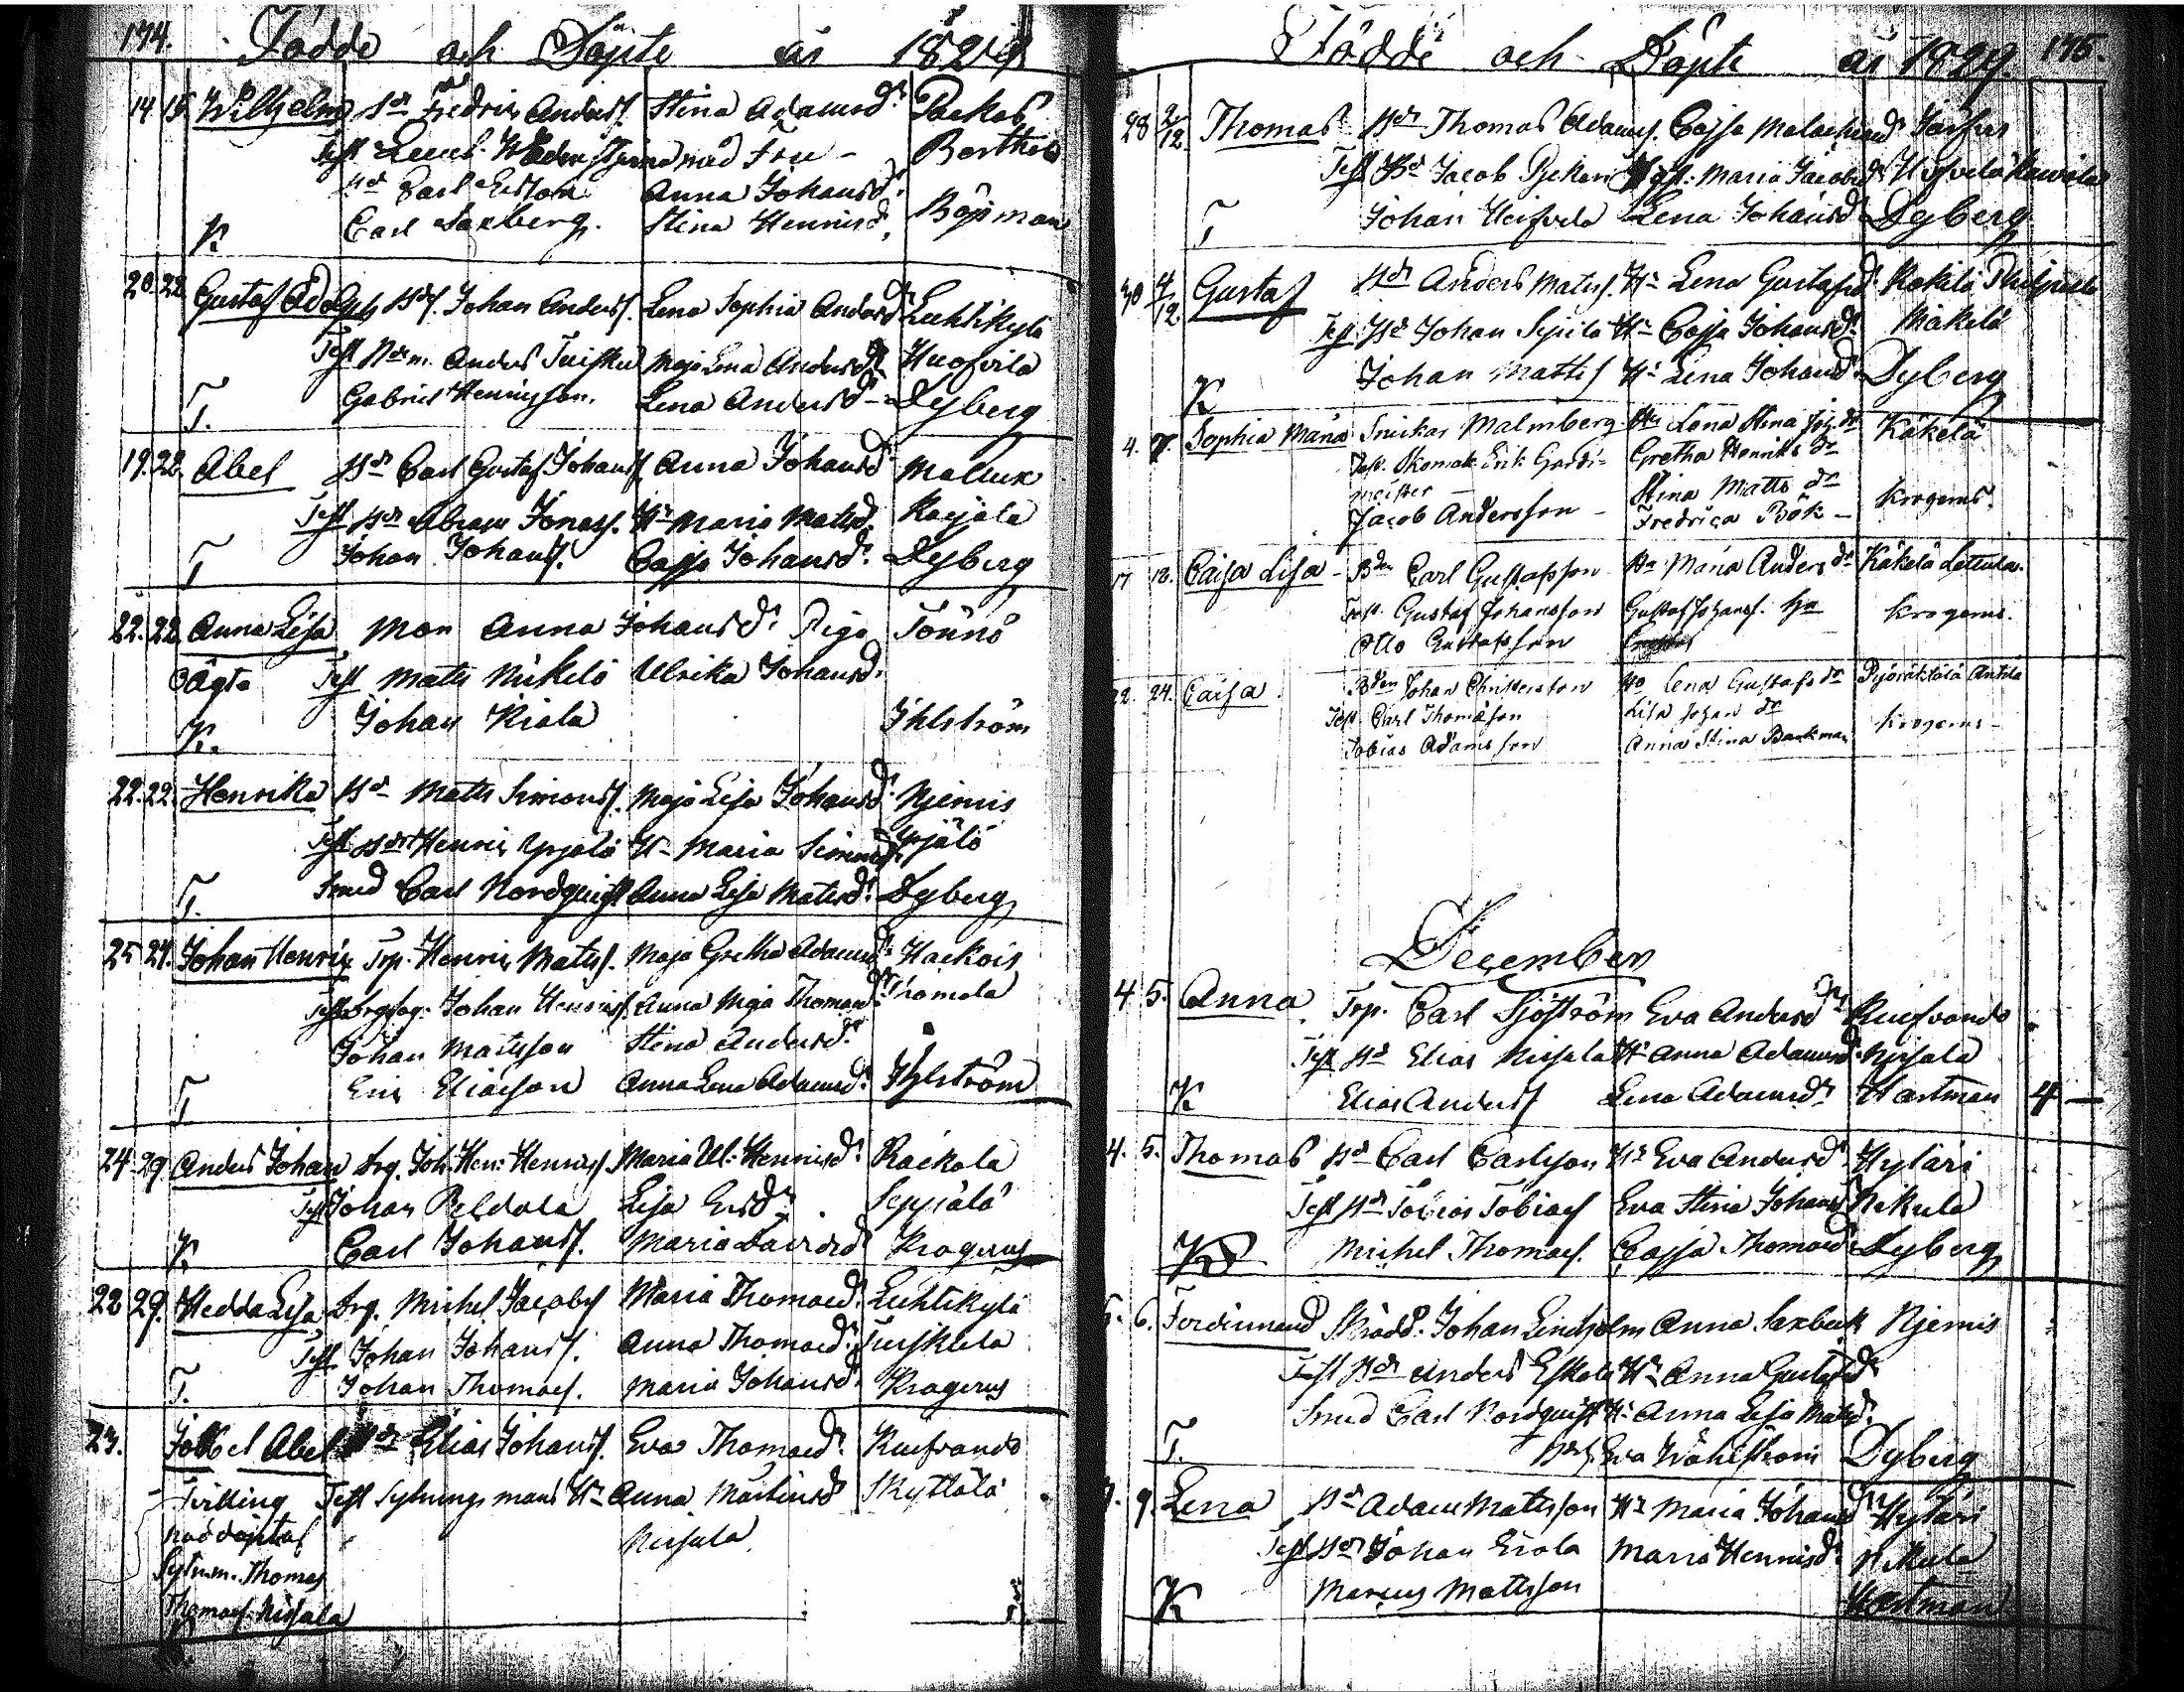 174. Födde och Döpte år 1829
14. 15. Wilhelm Bd Fredric Anders. Stina Adamsdr Packas
Test med Fru - Berthes
Bd Carl Anna Johansdr
K Carl Saxberg. Stina Henricsd.
20. 22. Gustaf Adolph Bds. Johan Anders. Lena Sophia Andersdr Luhtikylä
Test Ndm. Anders Tuisku Maja Lena Andersdr Huofvila
T. Gabriel Henricsson. Lena Andersdr Dyberg
19. 22. Abel Bdn Carl Gustaf Johans. Anna Johansd
Test Bdn Abram Jonass. Hu Maria Matsd. Karjala
T Johan Johans. Cajsa Johansdr Dyberg
22. 22 Anna Lisa Mor Anna Johansdr Piga Tönnö
Oägta Test Matts Mickelä Ulrika Johansd.
K. Johan Kiala Ihlström
22. 22. Henrika Bd Matts Simons. Maja Lisa Johansd Njemis
Test Bdn Henric Yrjälä Hu Maria Simonsd. Yrjälä
T. Smed Carl Nordquist Anna Lisa Matsdr Dyberg
25 29. Johan Henric Trp. Henric Mats. Maja Gretha Adamsdr Hackois
Test Johan Henrics. Anna Maja Thomasdr Thomola
Johan Matsson Stina Andersdr
T Eric Eliasson Anna Lena Adamsdr Ihlström
24. 29. Anders Johan Drg. Joh. Hen: Henrics. Maria Ul: Henricsdr Rackola
Test Johan Peldola Lisa Ersdr Seppälä
K Carl Johans. Maria Davidsd Krogerus
22 29. Hedda Lisa Drg. Michel Jacobs. Maria Thomasdr Luhtikylä
Test Johan Johans. Anna Thomasdr Tuiskula
T. Johan Thomas. Maria Johansdr Krogerus
23. Abel Bdn Elias Johans. Eva Thomasdr Kuifvando
Tvilling Test Sytningsmans Hu Anna Martinsd Skyttälä
nöddöptas Nirjala
Sytn.m. Thomas
Thomas. Nirjala
K
Födde och Döpte år 1829. 175.
28 2/12 Thomas Bdn Thomas Adams. Cajsa Malachiasdr
Test Bd Jacob Hu. Maria Jacobsdr
T Johan Lena Johansd Dyberg
30 4/12 Gustaf Bdn Anders Mats. Hu Lena Gustafsd. Kokila
Test Bd Johan Sipilä Hu Cajsa Johansdr Mäkelä
K Johan Matts. Hu Lena Johansd. Dyberg
4. 7. Sophia Maria Snickar Malmberg Hu Lona Stina Joh. dr Käkelä
Test. Skomak. Erik Gardi- Gretha Henriks dr
meister Stina Matts dr
Jacob Andersson - Fredrica Bök - Krogerus.
17. 18. Caisa Lisa - Bdn Carl Gustafsson Hu Maria Anders dr Käkelä Lettula.
Test. Gustaf Johansson Gustaf Johanss. Hu Krogerus.
Otto Gustafsson
22. 24. Caisa Bden Johan Christersson Hu Lena Gustafs dr Anttila
Test. Carl Thomason Lisa Johan dr Krogerus -
Tobias Adamsson Anna Stina Backman
December
4. 5. Anna Trp. Carl Sjöström Eva Andersdr Kuifvando
Test Bd Elias Nirjala Hu Anna Adamsd. Nirjala
K Elias Anders. Lena Adamsdr Hartman 4 -
4. 5. Thomas Bd Carl Carlsson Hu Eva Andersd. Hytäri
Test Bdn Tobias Tobias. Eva Stina Johansd Nikula
K Michel Thomas. Cajsa Thomasd. Dyberg
5. 6. Ferdinand Skrädd. Johan Lindholm Anna Saxbeck Njemis
Test Bdn Anders Eskola Hu Anna Gustafsdr
Smed Carl Nordquist Hu Anna Lisa Matsd.
T. Eva Wahlström Dyberg
9. Lena Bd Adam Matsson Hu Maria Johansdr Hytäri
Test Bdn Johan Erola Maria Henricsdr Nikula
K Marcus Mattsson Hartman